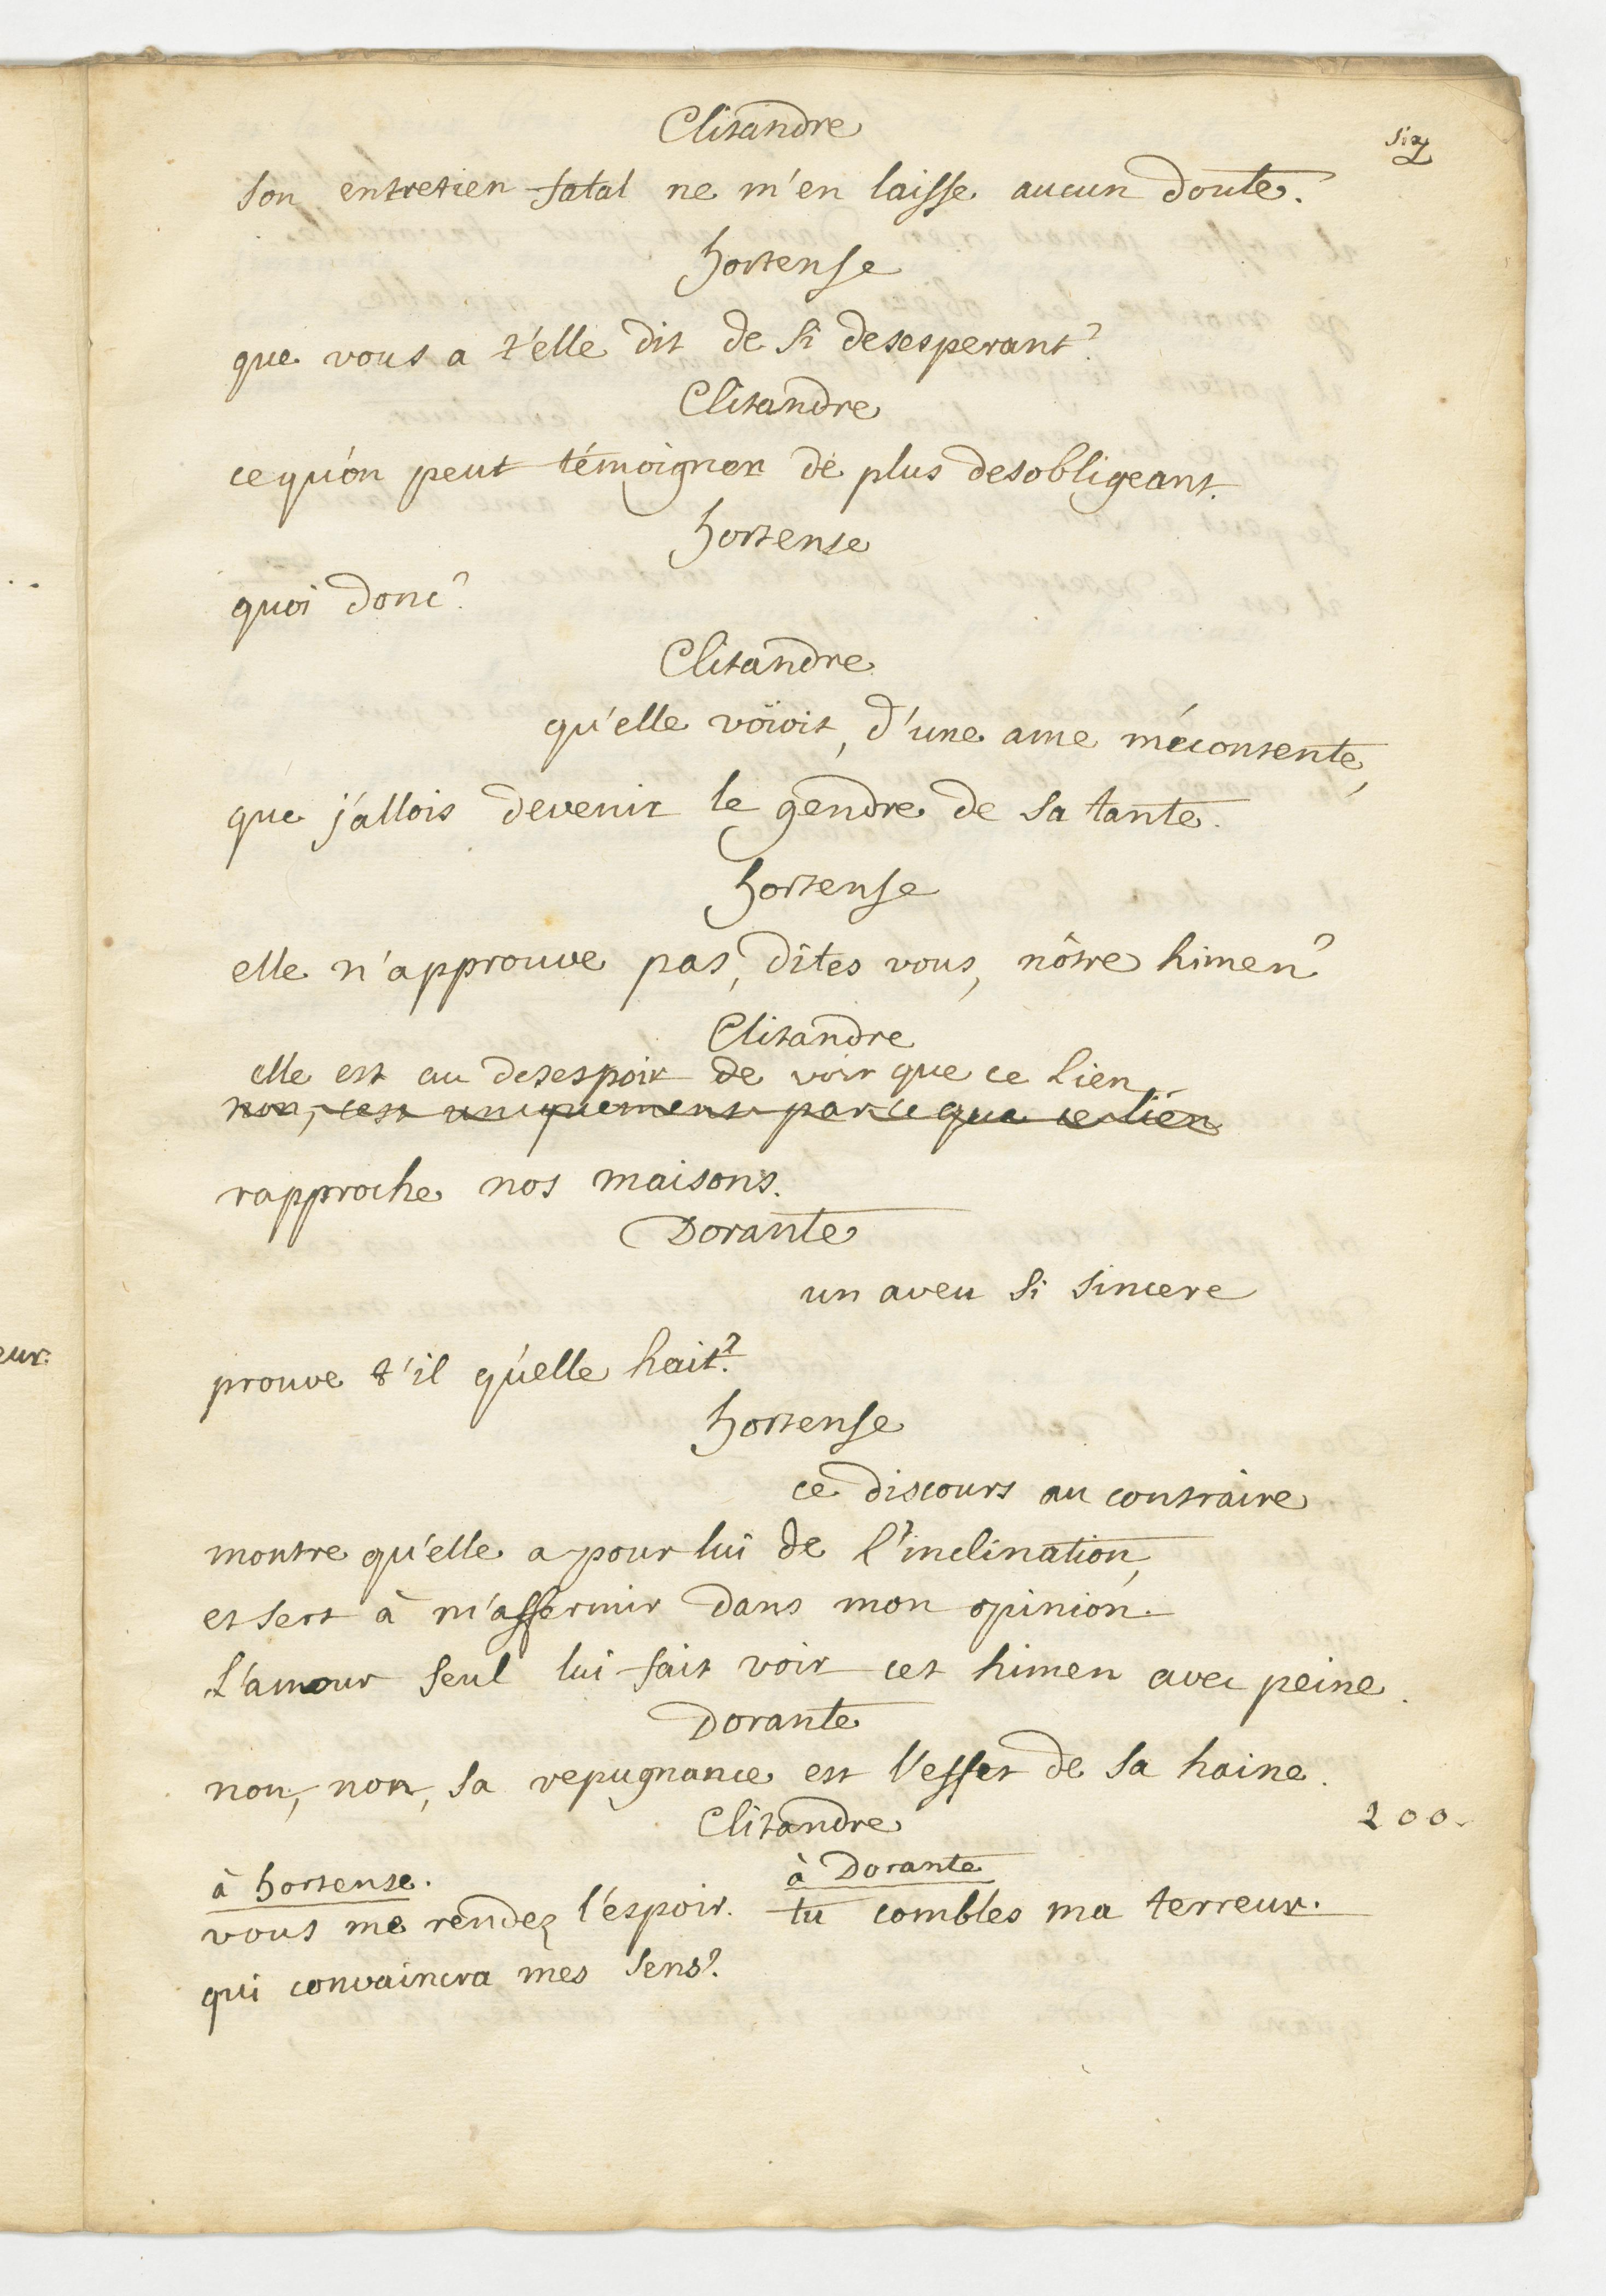 Clitandre
six
son entretien fatal ne m'en laisse aucun doute.
hortense
que vous a t'elle dit de si desesperant?
Clitandre
ce qu'on peut témoigner de plus desobligeant.
hortense
quoi donc?
Clitandre
qu'elle voïoit, d'une ame mécontente,
que j'allois devenir le gendre de sa tante.
hortense
elle n'approuve pas, dites vous, nôtre himen?
Clitandre
elle est au desespoir de voir que ce lien
non, c'est uniquement parceque ce lien
rapproche nos maisons.
Dorante
un aveu si sincere
prouve t'il qu'elle hait?
hortense
ce discours au contraire
montre qu'elle a pour lui de l'inclination,
et sert à m'affermir dans mon opinion.
L'amour seul lui fait voir cet himen avec peine.
Dorante
non, non, sa repugnance est l'effet de sa haine.
Clitandre
200.
à hortense. à Dorante
vous me rendez l'espoir. tu combles ma terreur.
qui convaincra mes sens?
eur.